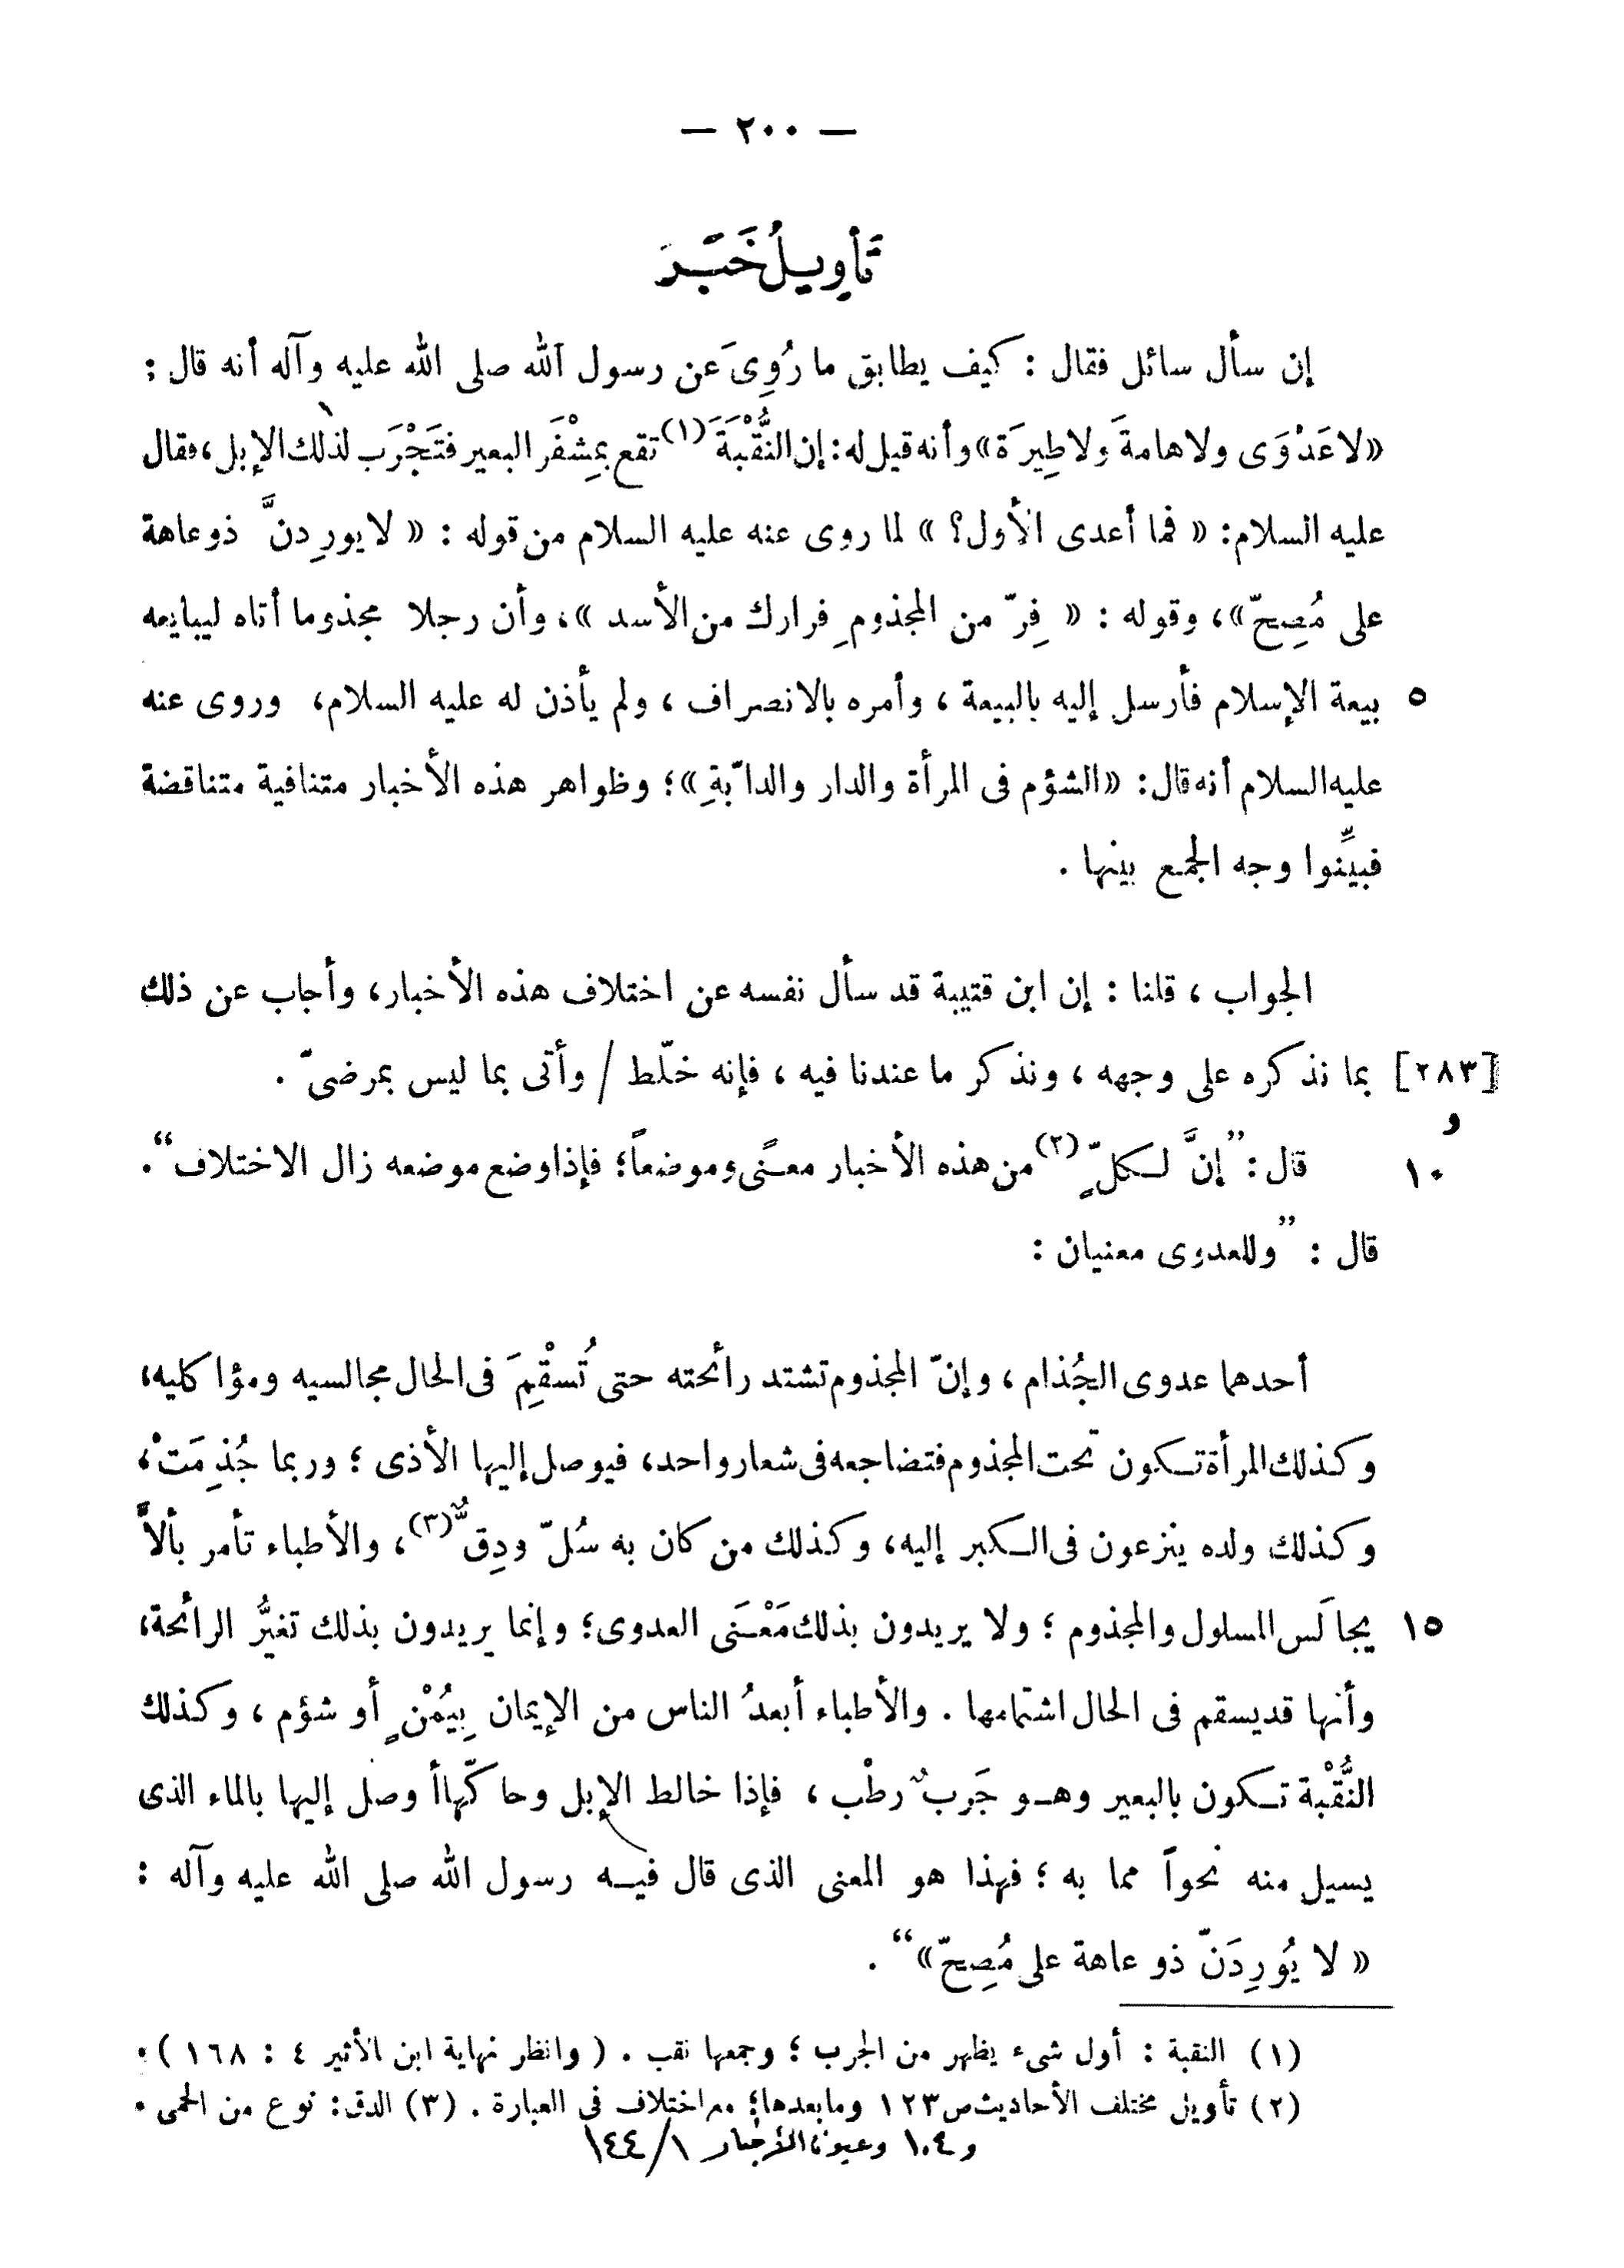 — ٢٠٠ —
تَأوِيلُ خَبَر
إن سأل سائل فقال : كيف يطابق ما رُوِىَ عن رسول الله صلى الله عليه وآله أنه قال :
«لا عَدْوَى ولا هامةَ ولا طِيرَة» وأنه قيل له: إن النُّقْبَةَ (١) تقع بمِشْفَر البعير فتَجْرَب لذلك الإبل، فقال
عليه السلام: « فما أعدى الأول؟ » لما روى عنه عليه السلام من قوله : « لا يورِدنَّ ذو عاهة
على مُصِحّ»، وقوله : « فِرّ من المجذوم فِرارك من الأسد »، وأن رجلا مجذوما أتاه ليبايعه
٥ بيعة الإسلام فأرسل إليه بالبيعة ، وأمره بالانصراف ، ولم يأذن له عليه السلام، وروى عنه
عليه السلام أنه قال: «الشؤم فى المرأة والدار والدابّةِ»؛ وظواهر هذه الأخبار متنافية متناقضة
فبيِّنوا وجه الجمع بينها .
الجواب ، قلنا : إن ابن قتيبة قد سأل نفسه عن اختلاف هذه الأخبار، وأجاب عن ذلك
[٢٨٣] بما نذكره على وجهه ، ونذكر ما عندنا فيه ، فإنه خلّط / وأتى بما ليس بمرضىّ .
و
١٠ قال : ”إنَّ لـكلّ (٢) من هذه الأخبار معنًى وموضعاً؛ فإذا وضع موضعه زال الاختلاف“ .
قال : ”وللعدوى معنيان :
أحدهما عدوى الجُذام ، وإنّ المجذوم تشتد رائحته حتى تُسْقِمَ فى الحال مجالسيه ومؤاكليه،
وكذلك المرأة تـكون تحت المجذوم فتضاجعه فى شعار واحد، فيوصل إليها الأذى ؛ وربما جُذِمَتْ،
وكذلك ولده ينزعون فى الـكبر إليه، وكذلك من كان به سُلّ ودِقٌّ (٣)، والأطباء تأمر بألاّ
١٥ يجالَس المسلول والمجذوم ؛ ولا يريدون بذلك مَعْنَى العدوى؛ وإنما يريدون بذلك تغيُّر الرائحة،
وأنها قد يسقم فى الحال اشتمامها . والأطباء أبعدُ الناس من الإيمان بِيُمْنٍ أو شؤم ، وكذلك
النُّقْبة تـكون بالبعير وهـو جَربٌ رطْب ، فإذا خالط الإبل وحاكّها أوصل إليها بالماء الذى
يسيل منه نحواً مما به ؛ فهذا هو المعنى الذى قال فيـه رسول الله صلى الله عليه وآله :
« لا يُورِدَنّ ذو عاهة على مُصِحّ»“ .
(١) النقبة : أول شىء يظهر من الجرب ؛ وجمعها نقب . ( وانظر نهاية ابن الأثير ٤ : ١٦٨ ) .
(٢) تأويل مختلف الأحاديث ص ١٢٣ وما بعدها؛ مع اختلاف فى العبارة . (٣) الدق : نوع من الحمى .
و١٠٤ وعيون الأخبار ١/١٤٤